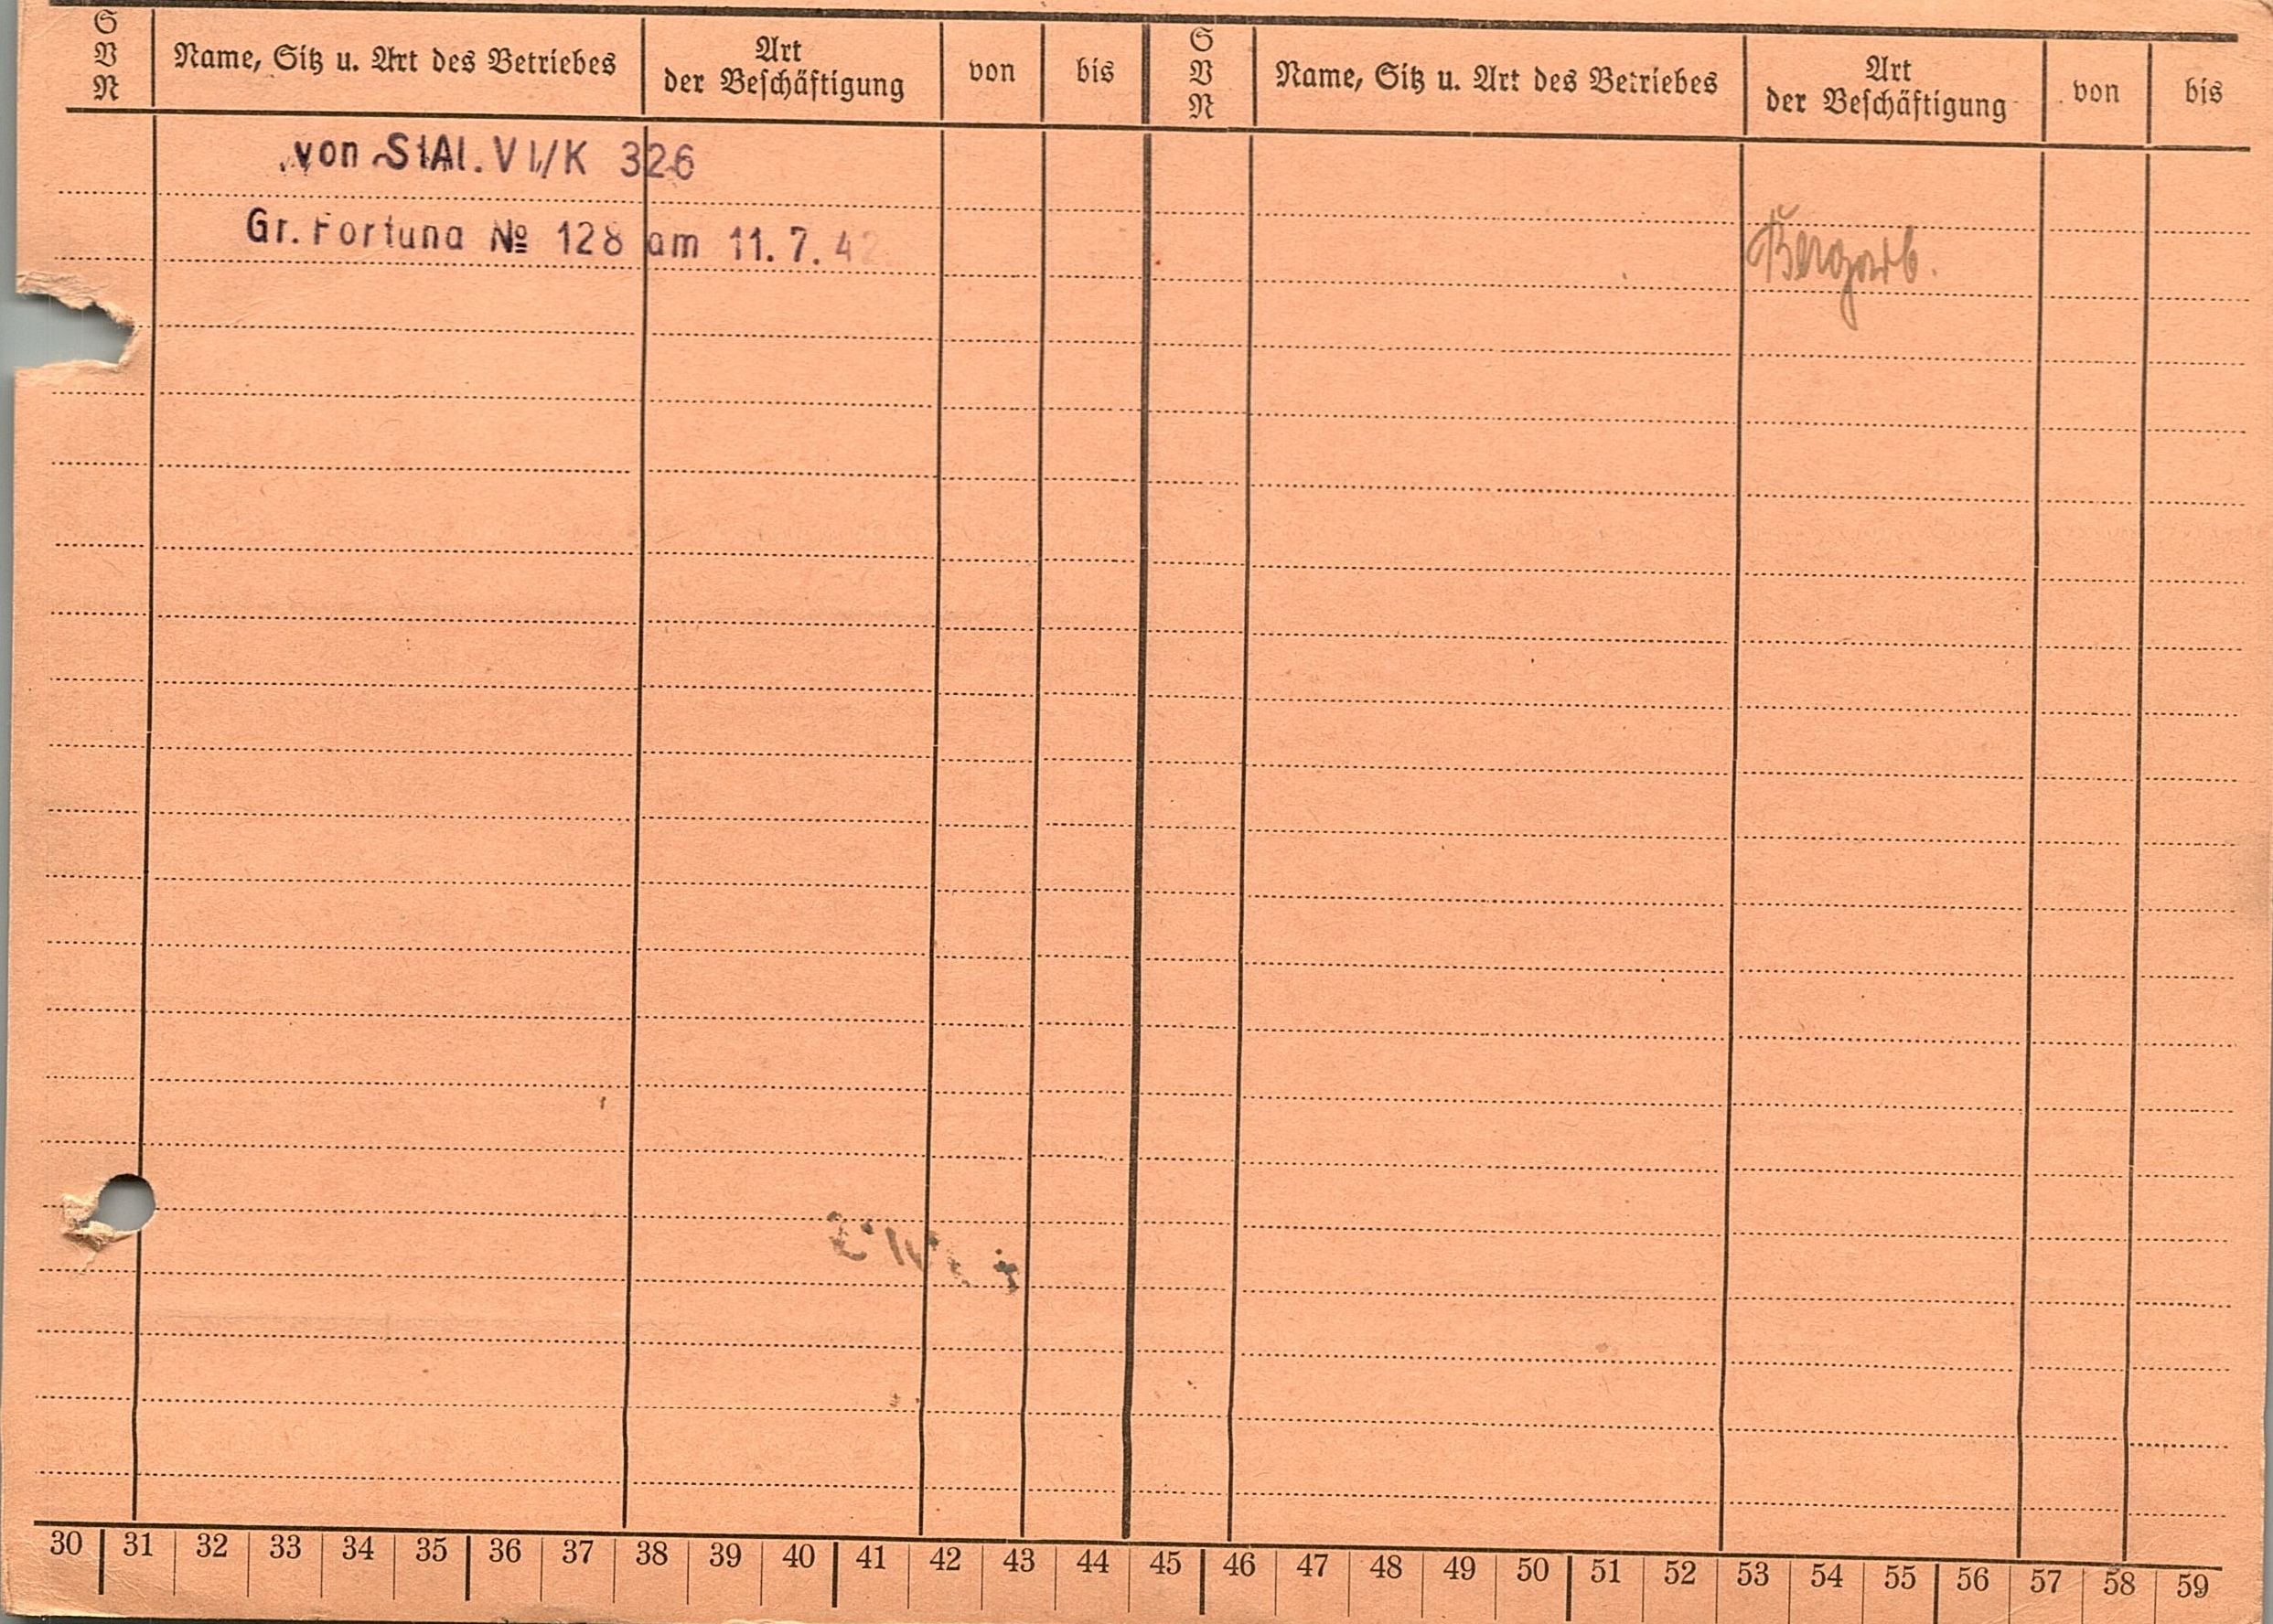 S
V
N
Name, Sitz u. Art des Betriebes
Art
der Beschäftigung
von
bis
S
V
N
Name, Sitz u. Art des Betriebes
Art
der Beschäftigung
von
bis
von StAl. VI/K 326
Gr. Fortuna № 128 am 11. 7. 42
Bergarb.
30 31 32 33 34 35 36 37 38 39 40 41 42 43 44 45 46 47 48 49 50 51 52 53 54 55 56 57 58 59